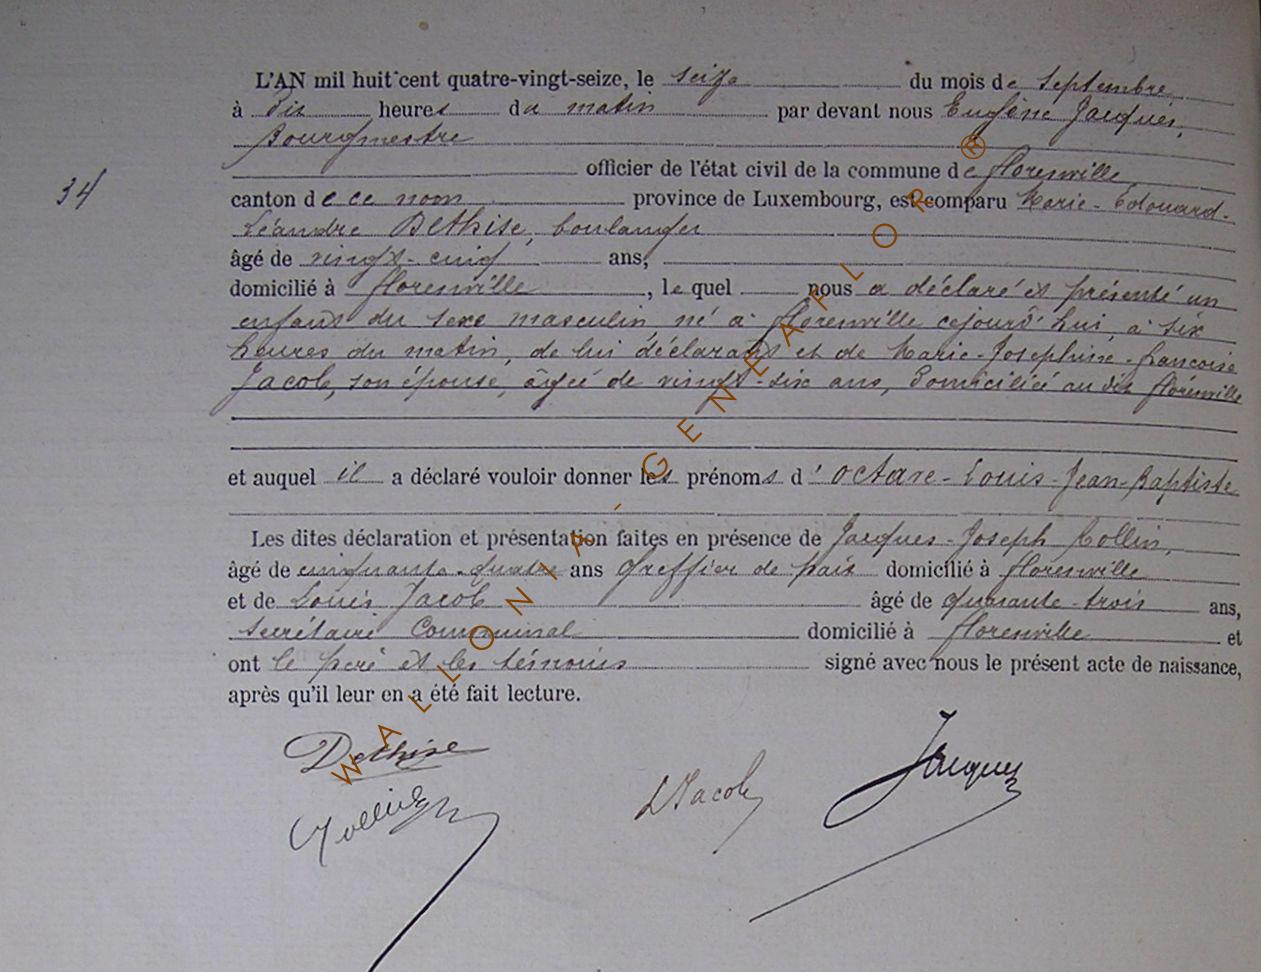 L'AN mil huit cent quatre-vingt-seize, le seize du mois de Septembre
à dix heures du matin par devant nous Eugène Jacques,
Bourgmestre
officier de l'état civil de la commune de florenville
34
canton de ce nom province de Luxembourg, est comparu Marie-Edouard-
Léandre Dethise, boulanger
âgé de vingt-cinq ans,
domicilié à florenville, le quel nous a déclaré et présenté un
enfant du sexe masculin, né à florenville cejourd'hui, à six
heures du matin, de lui déclarant et de Marie-Josephine-francoise
Jacob, son épouse, âgée de vingt-six ans, domiciliée au dit florenville
et auquel il a déclaré vouloir donner les prénoms d'Octave-Louis-Jean-Baptiste
Les dites déclaration et présentation faites en présence de Jacques-Joseph Collin,
âgé de cinquante-quatre ans Greffier de paix domicilié à florenville
et de Louis Jacob âgé de quarante-trois ans,
Secrétaire Communal domicilié à florenville et
ont le père et les témoins signé avec nous le présent acte de naissance,
après qu'il leur en a été fait lecture.
Dethise
JCollin LJacob Jacques
WALLONIA-GENEAFLOR ®